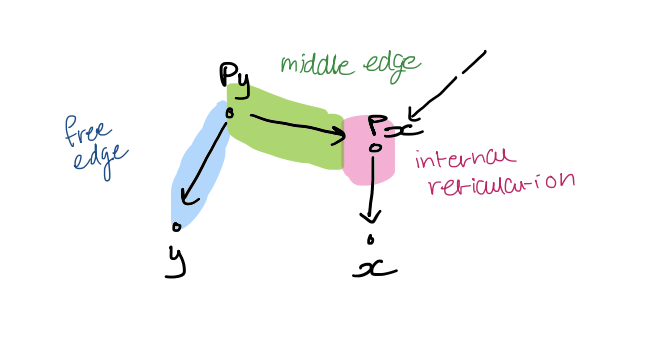 middle edge
Py
free
edge
Px
internal
reticulation
y
x